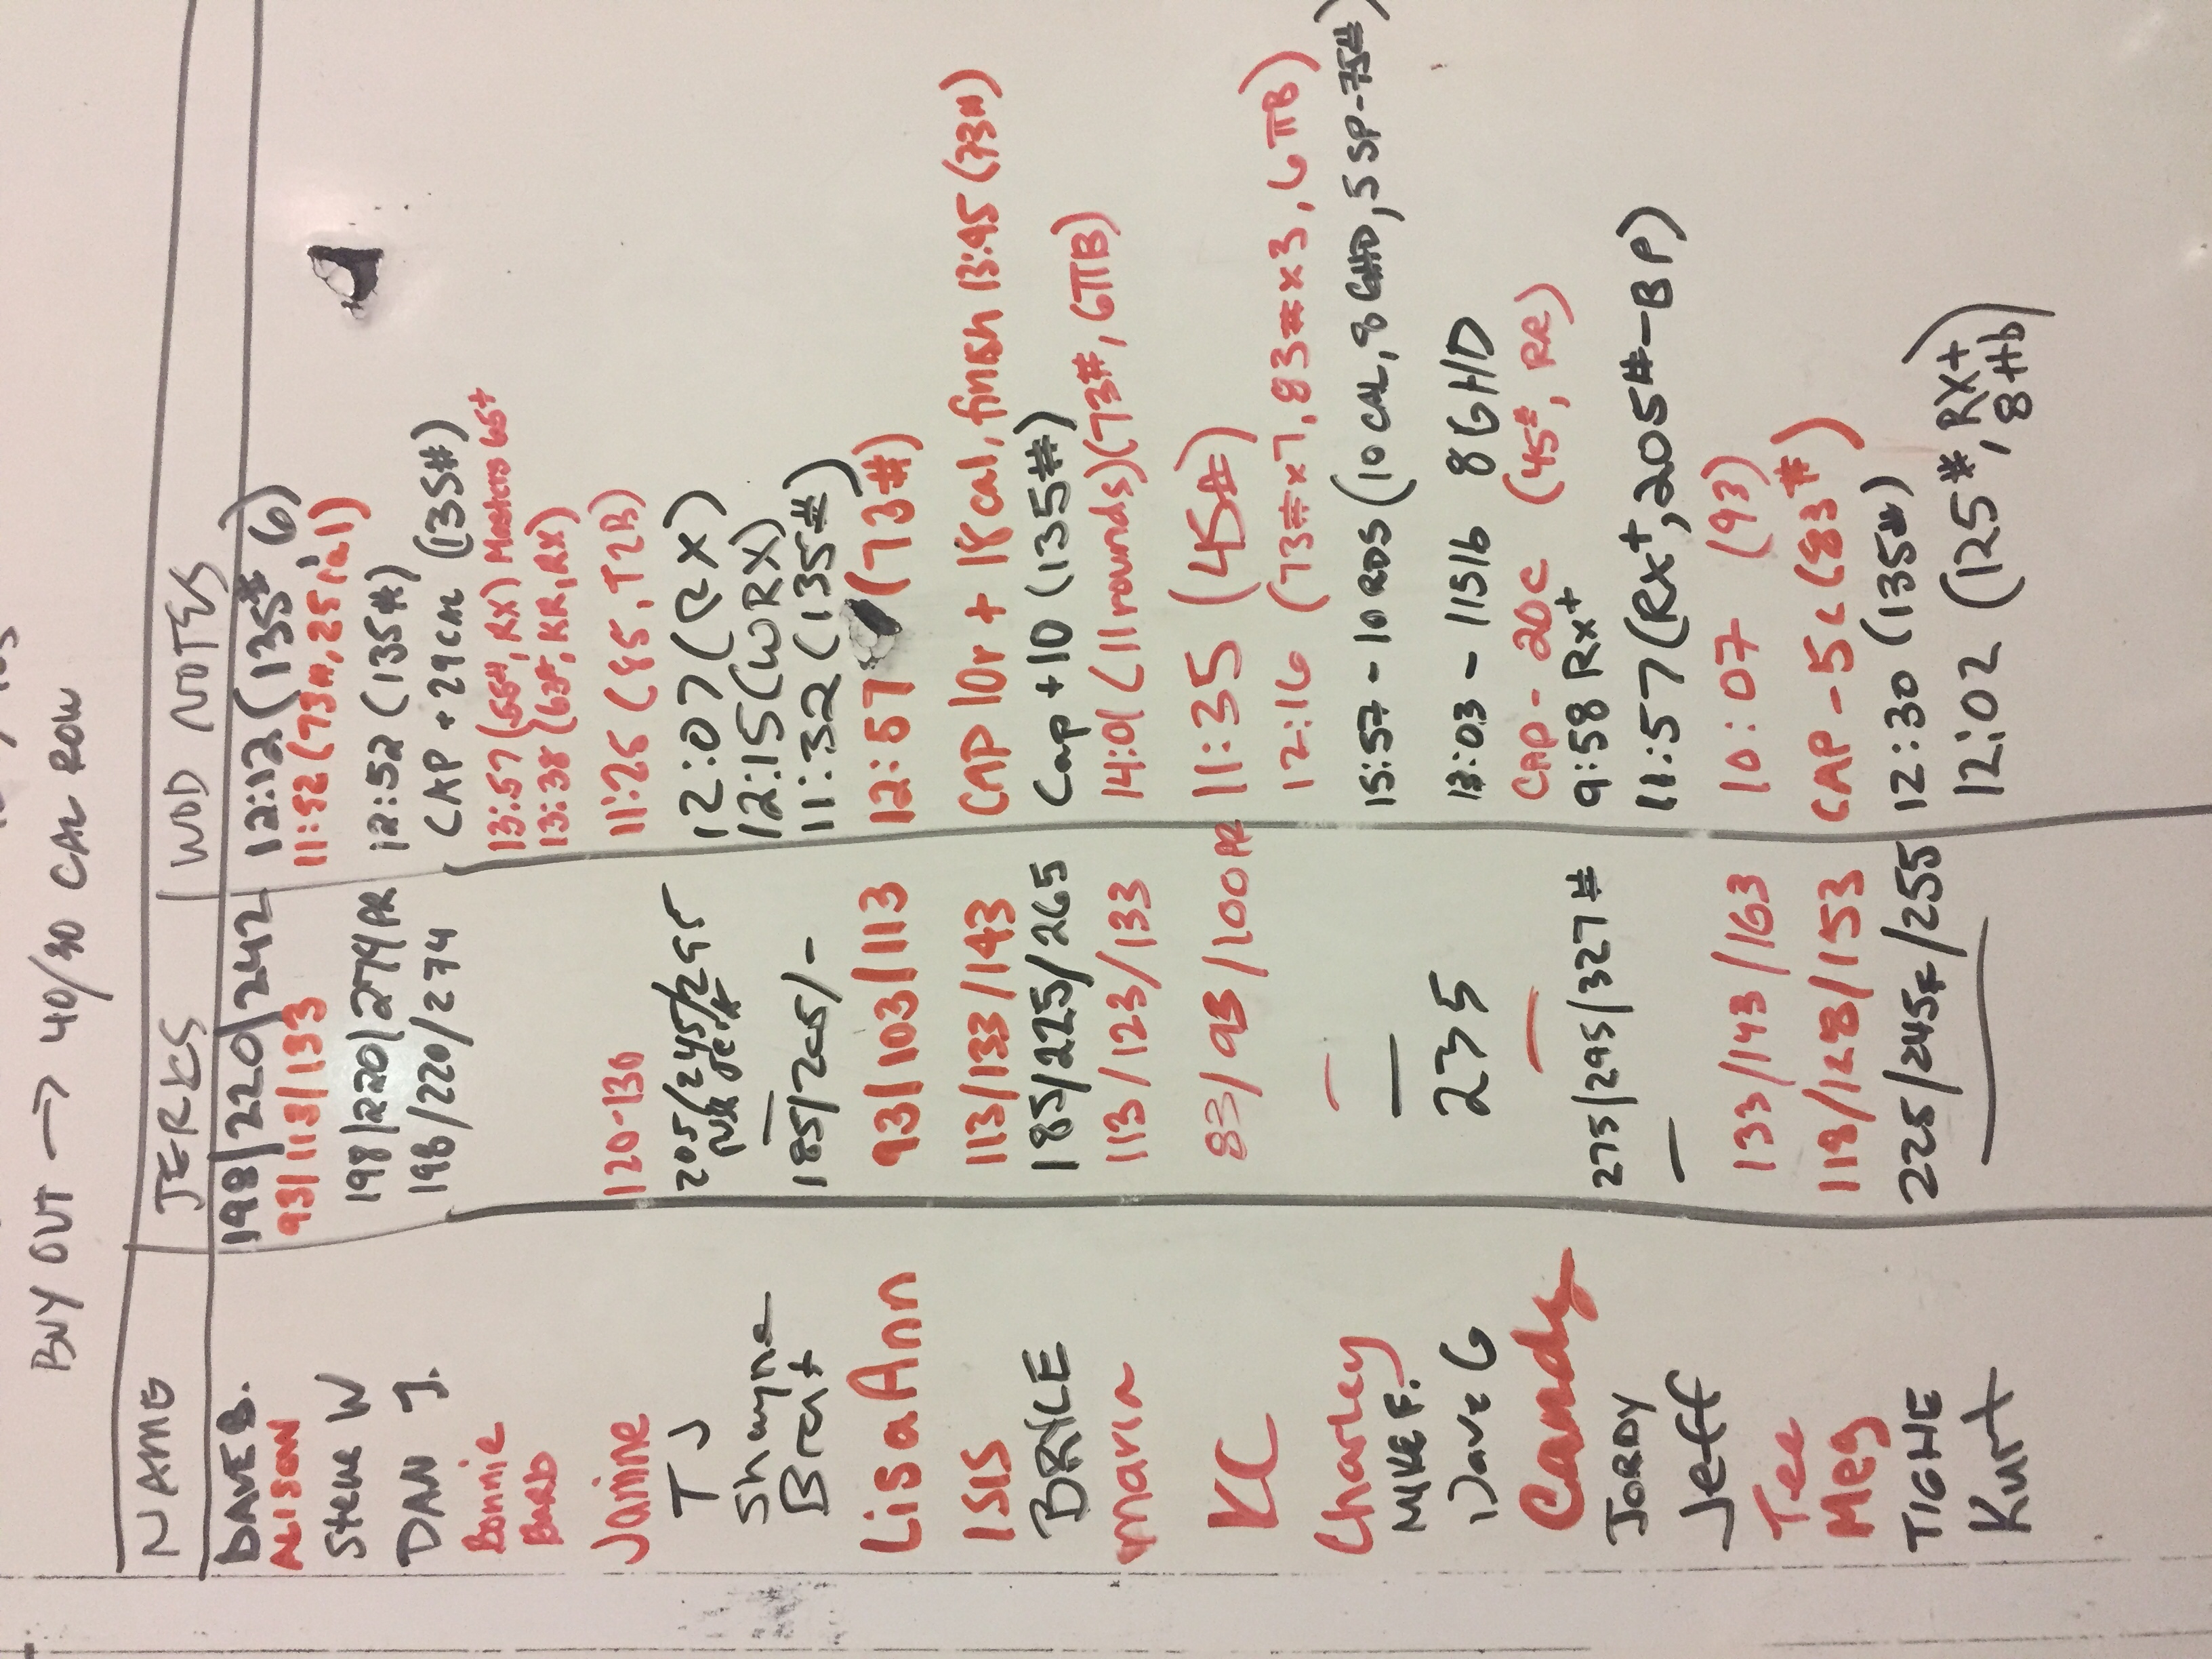 BUY OUT → 40/30 CAL ROW
NAME JERKS WOD NOTES
DAVE B. 198/220/242 12:12 (135# 6)
ALISON 93/113/133 11:52 (73#, 25 cal)
Steve W 198/220/274 PR 12:52 (135#)
DAN J. 198/220/274 CAP + 29 CAL (135#)
Bonnie 13:57 (55#, RX) Masters 65+
BARB 13:38 (63#, RR, RX)
Janine 120-130 11:26 (85, T2B)
TJ 205/245/255 12:07 (RX)
Shayne — 12:15 (WRX)
Brent 185/205/- 11:32 (135#)
Lisa Ann 93/103/113 12:57 (73#)
ISIS 113/133/143 CAP 10r + 18cal, finish 13:45 (73#)
BRYLE 185/225/265 Cap +10 (135#)
Maria 113/123/133 14:01 (11 rounds) (73#, 6TTB)
KC 83/93/100 PR 11:35 (45#)
Charley — 12:16 (73#x7, 83#x3, 6TTB)
MIKE F. — 15:57 - 10 RDS (10 CAL, 8 GHD, 5 SP-75#)
Dave G 235 13:03 - 115lb 8 GHD
Candy — CAP - 20c (45#, RR)
JORDY 275/295/327# 9:58 RX+
Jeff — 11:57 (RX+, 205#-BP)
Tee 133/143/163 10:07 (93)
Meg 118/128/153 CAP - 5c (83#)
TIGHE 225/245F/255 12:30 (135#)
Kurt — 12:02 (125#, RX+, 8 Hb)